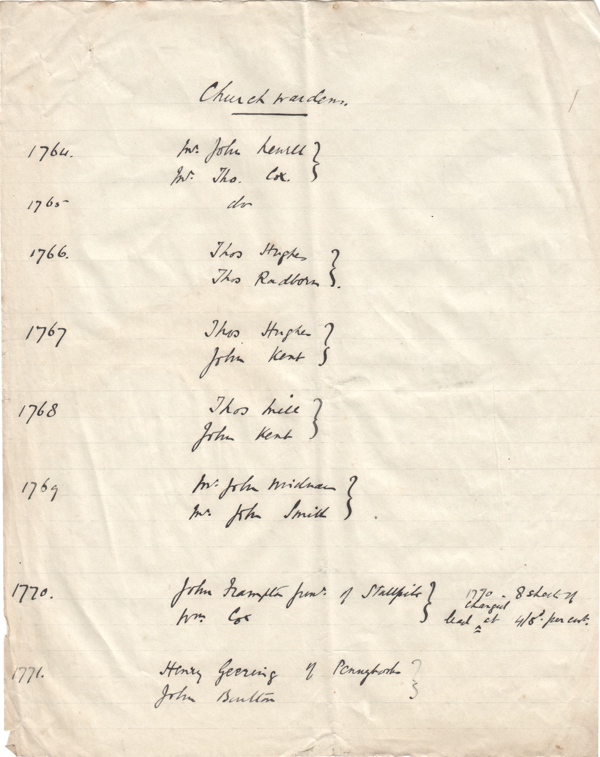 Churchwardens.
1764. Mr. John Kewell }
Mr. Tho. Cox. }
1765 do
1766. Thos Hughes }
Thos Radborn }.
1767 Thos Hughes }
John Kent }
1768 Thos Mill }
John Kent }
1769 Mr. John
Mr. John Smith } .
1770. John Frampton Junr. of Stallpits } 1770 - 8 sheets of
Wm Cox } lead changed at 4/8d. per cwt.
1771. Henry Geering of Pennyhooks }
John